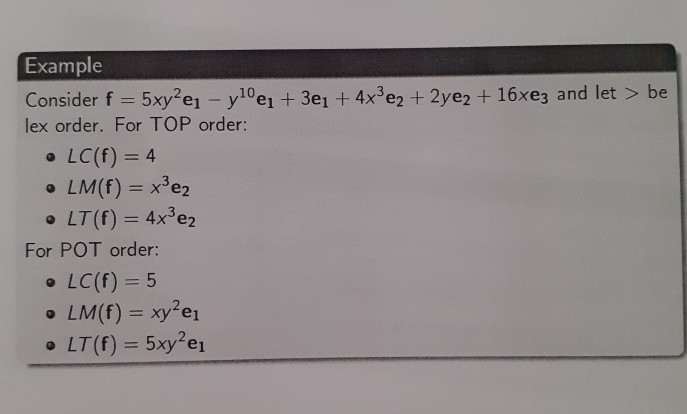 Example
Consider f = 5xy²e₁ − y¹⁰e₁ + 3e₁ + 4x³e₂ + 2ye₂ + 16xe₃ and let > be
lex order. For TOP order:
• LC(f) = 4
• LM(f) = x³e₂
• LT(f) = 4x³e₂
For POT order:
• LC(f) = 5
• LM(f) = xy²e₁
• LT(f) = 5xy²e₁